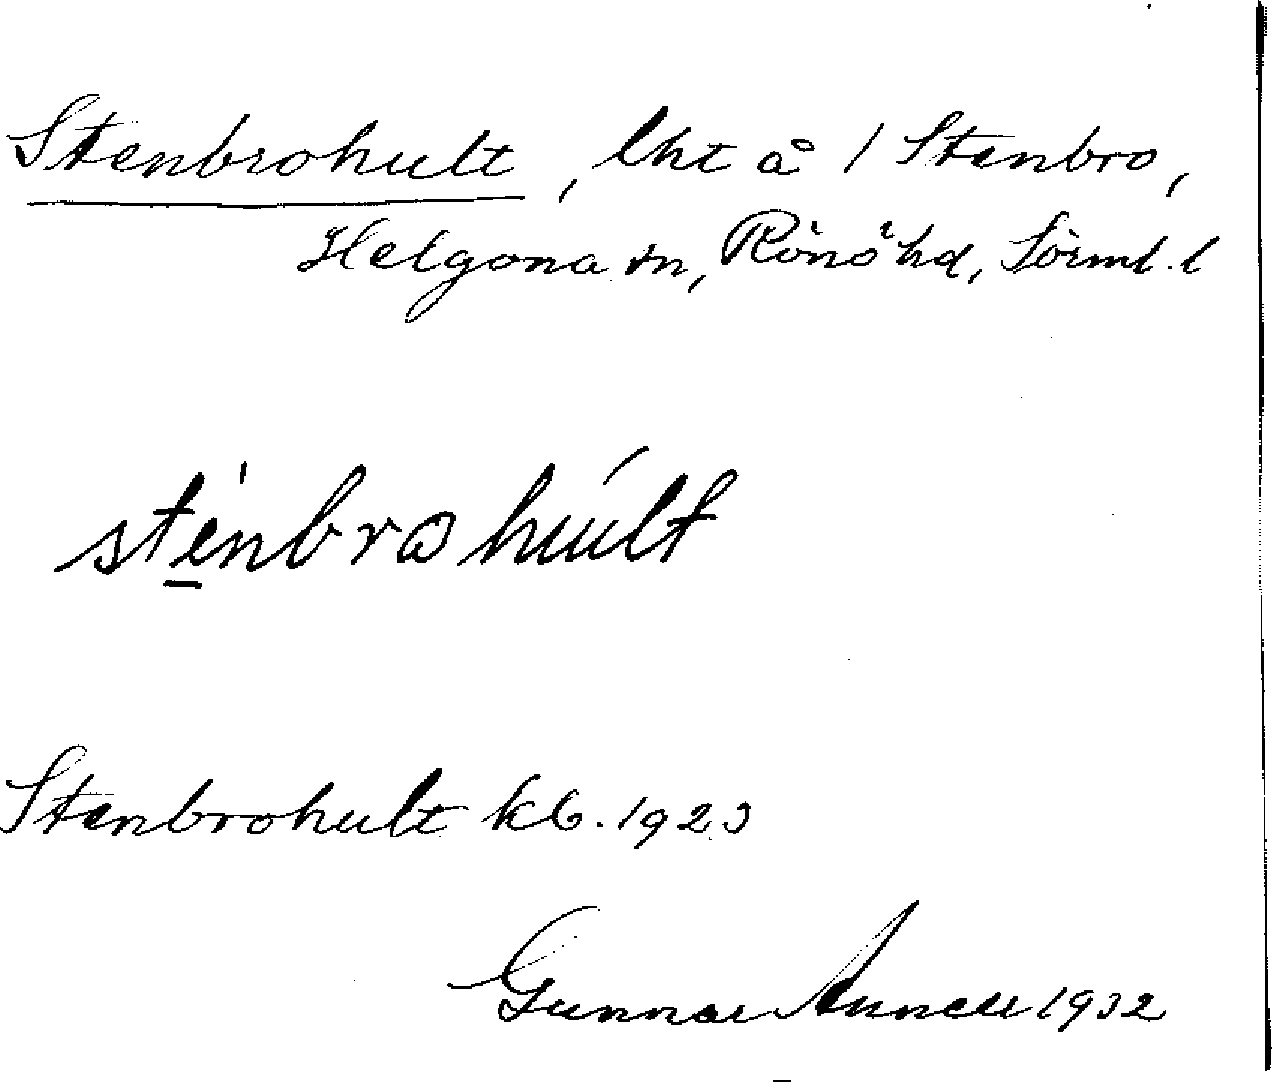 Stenbrohult, lht å 1 Stenbro,
Helgona sn, Rönö hd, Sörml. l
ste̲nbro hult
Stenbrohult kb. 1923
Gunnar Annell 1932